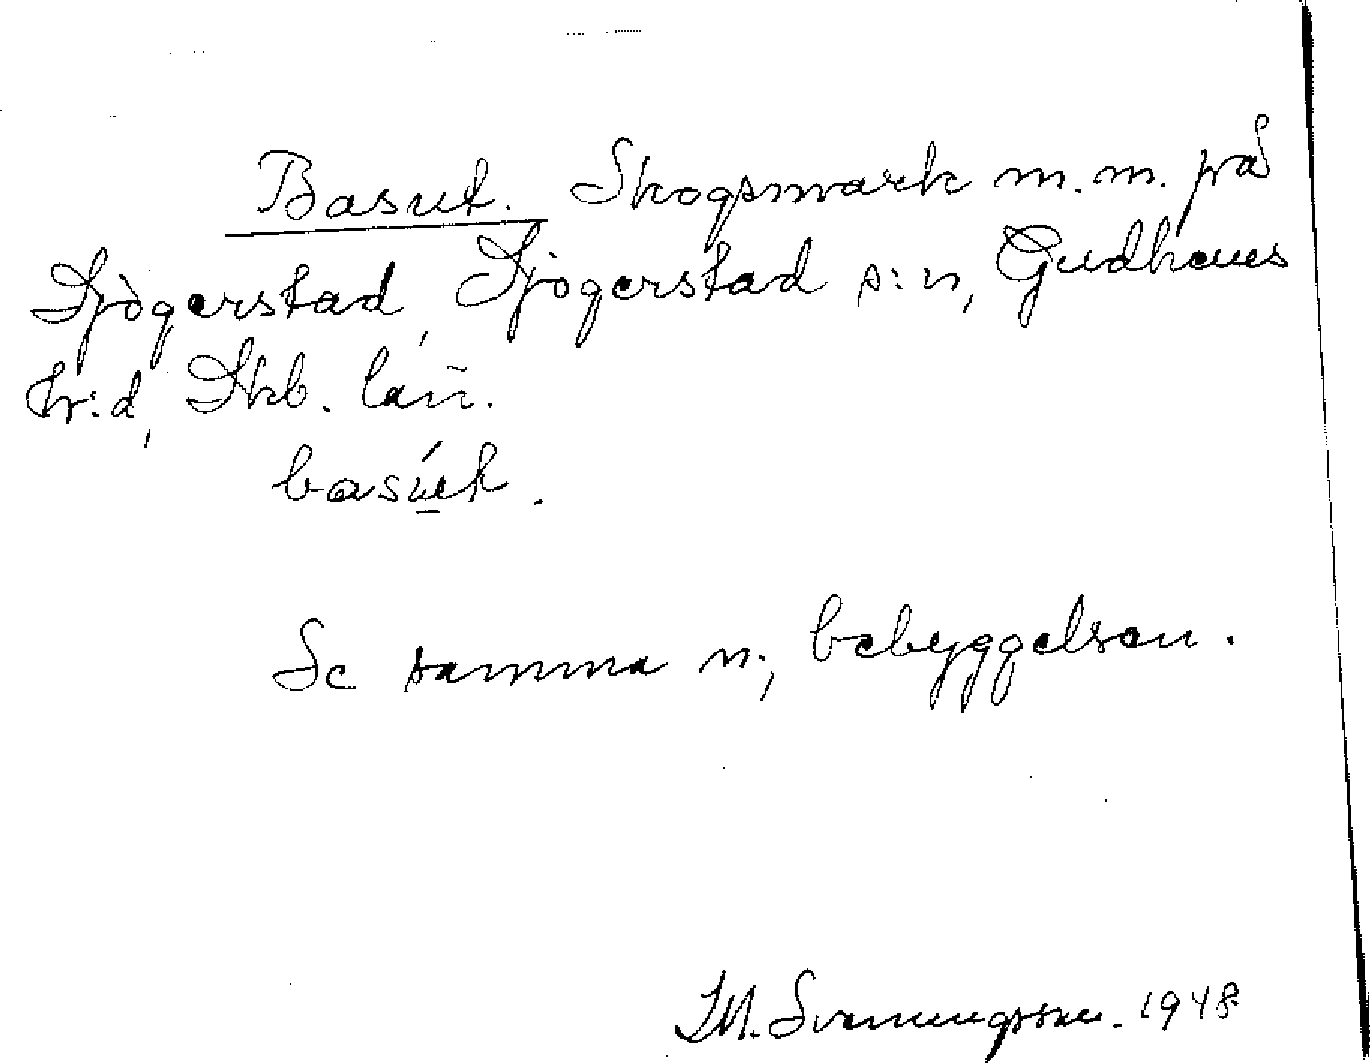 Basut. Skogsmark m.m. på
Sjögerstad, Sjögerstad s:n, Gudhems
hr:d, Skb. län.
Se samma n., bebyggelsen.
M. Svenungsson. 1948